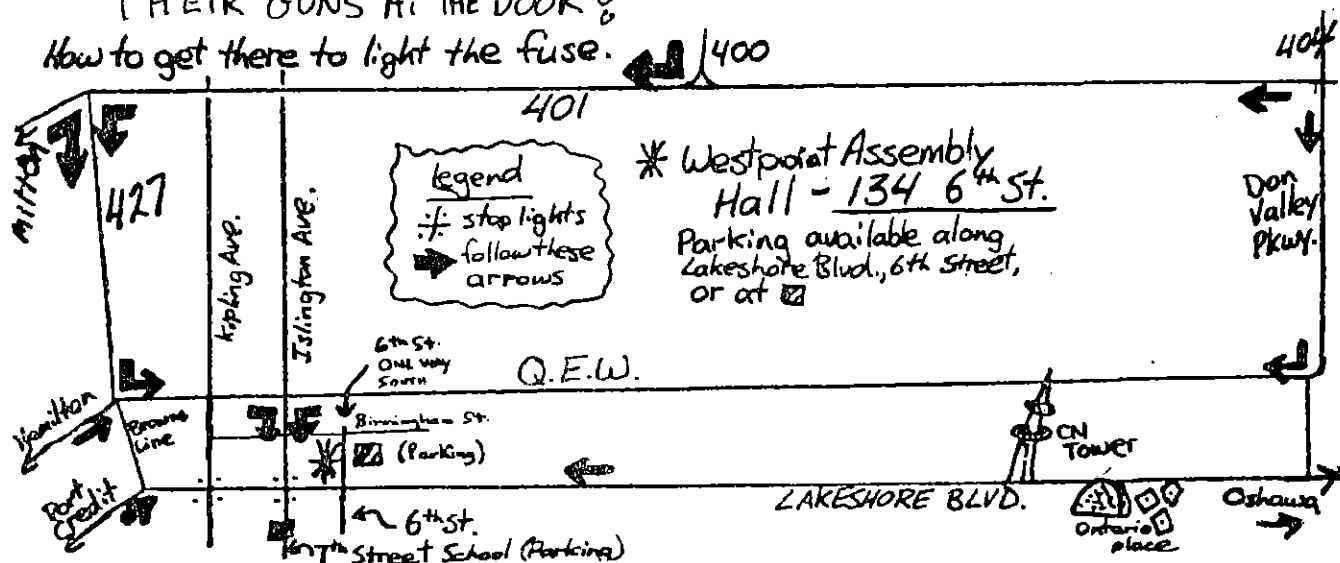 THEIR GUNS AT THE DOOR!
How to get there to light the fuse.
400
404
401
Milton
427
Kipling Ave.
Islington Ave.
legend
stop lights
follow these
arrows
Westpoint Assembly
Hall - 134 6th St.
Parking available along
Lakeshore Blvd., 6th Street,
or at
Don
Valley
Pkwy.
6th St.
ONE WAY
SOUTH
Q.E.W.
Hamilton
Browns
Line
Birmingham St.
(Parking)
CN
Tower
Port
Credit
LAKESHORE BLVD.
Ontario
place
Oshawa
6th St.
7th Street School (Parking)